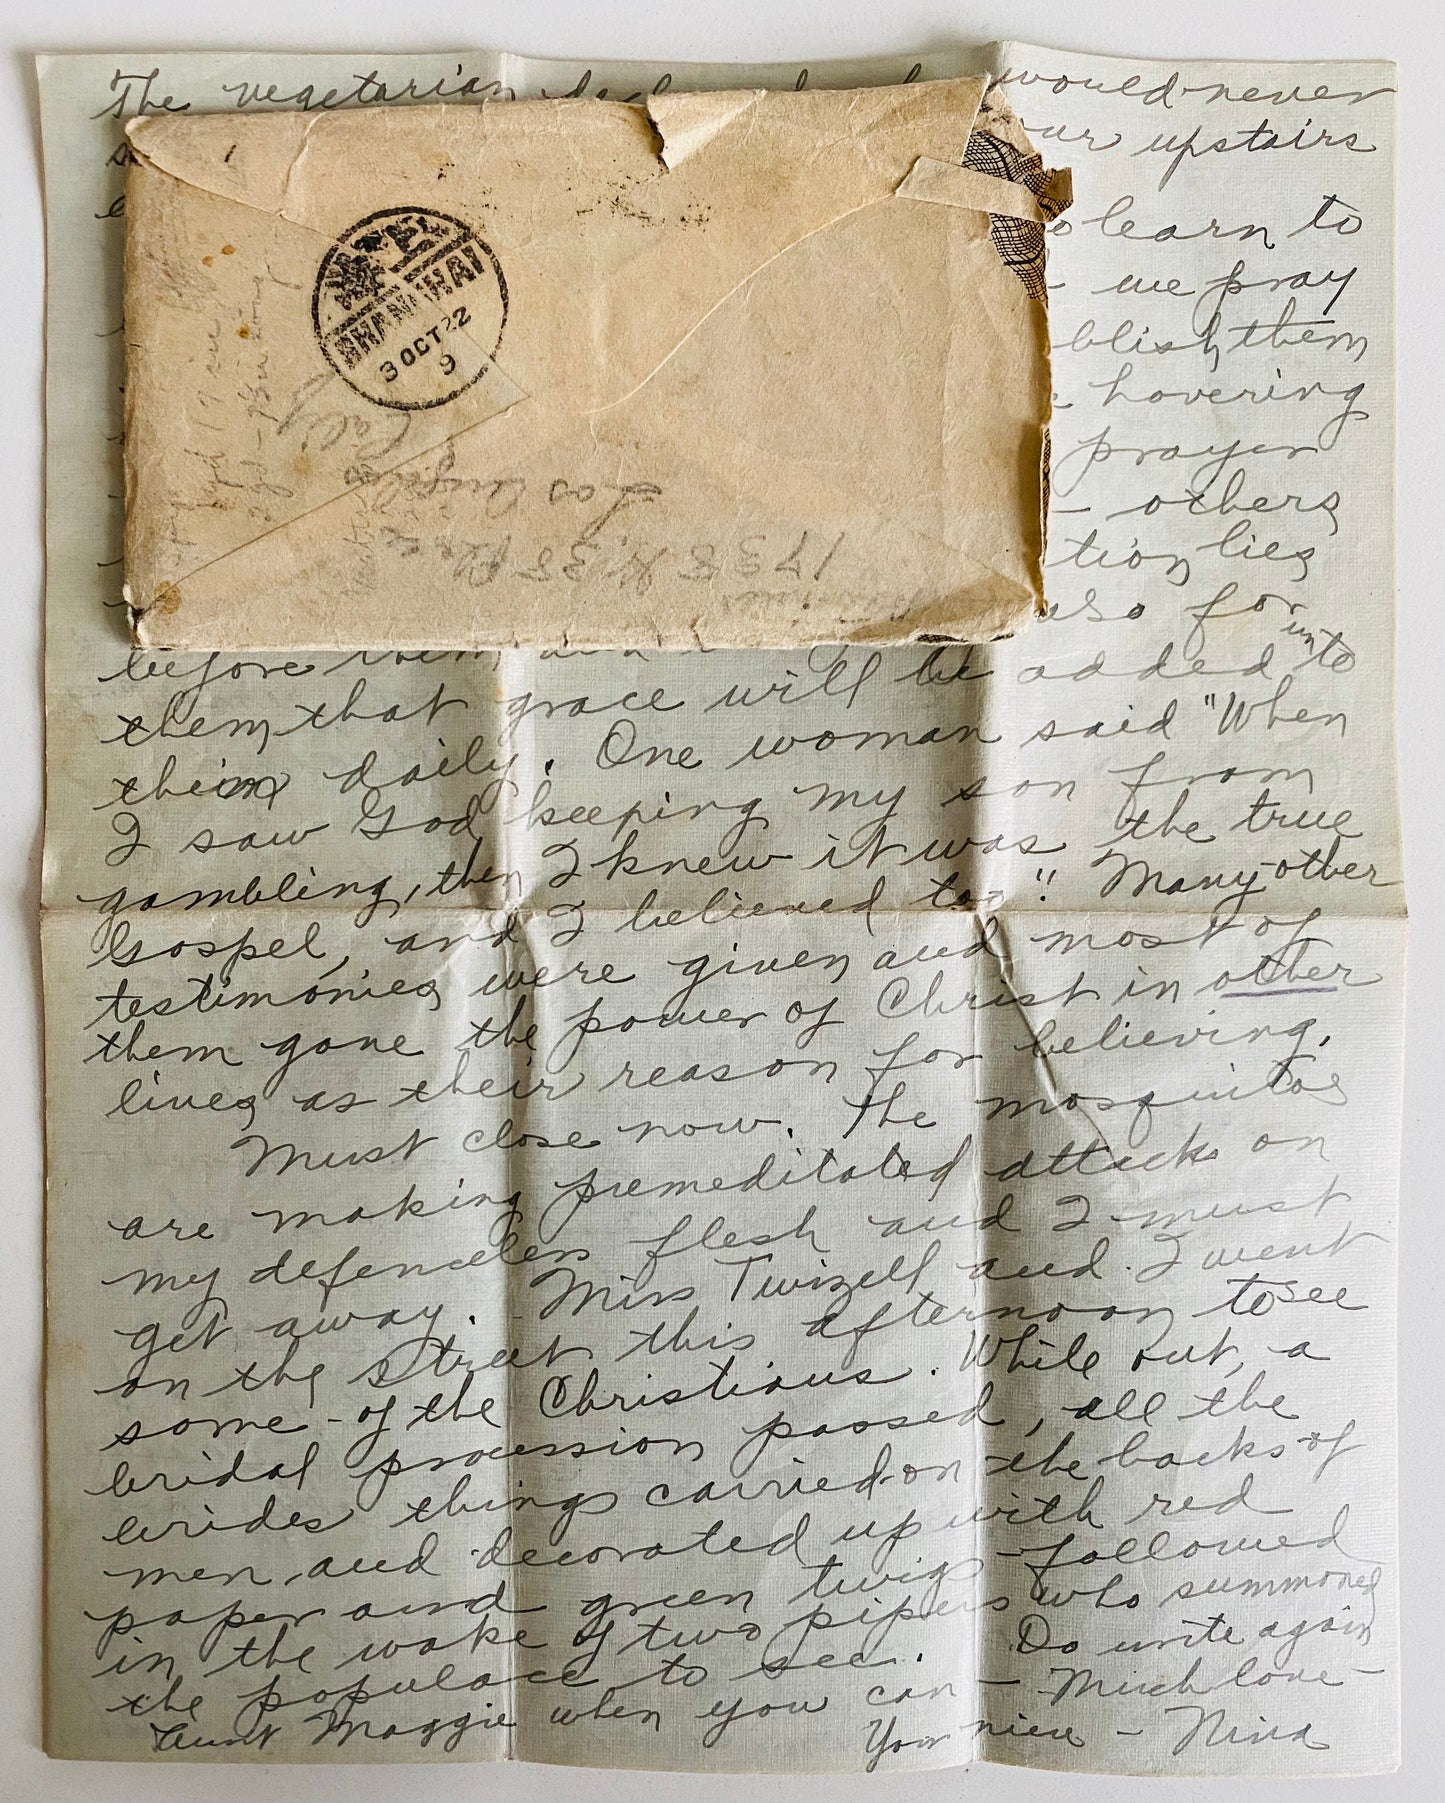 The vegetarian would never
our upstairs
learn to
we pray
blish them
hovering
prayer
- others
tion lies
also for
before them and
them that grace will be added unto
them daily. One woman said "When
I saw God keeping my son from
gambling, then I knew it was the true
Gospel, and I believed too". Many other
testimonies were given and most of
them gave the power of Christ in other
lives as their reason for believing.
Must close now. The mosquitos
are making premeditated attack on
my defenceless flesh and I must
get away. Miss Twizell and I went
on the street this afternoon to see
some of the Christians. While out, a
bridal procession passed, all the
brides things carried on the backs of
men and decorated up with red
paper and green twigs followed
in the wake of two pipers who summoned
the populace to see. Do write again
Aunt Maggie when you can - Much love -
Your niece - Nina
SHANGHAI
3 OCT 22
9
1738 W. 35 Place
Los Angeles
Calif